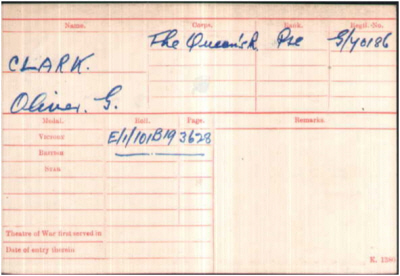 Name. Corps. Rank. Regtl. No.
The Queen's R Pte G/40186
CLARK.
Oliver. G.
Medal. Roll. Page. Remarks.
VICTORY E/1/101B19 3628
BRITISH
STAR
Theatre of War first served in
Date of entry therein
K. 1380